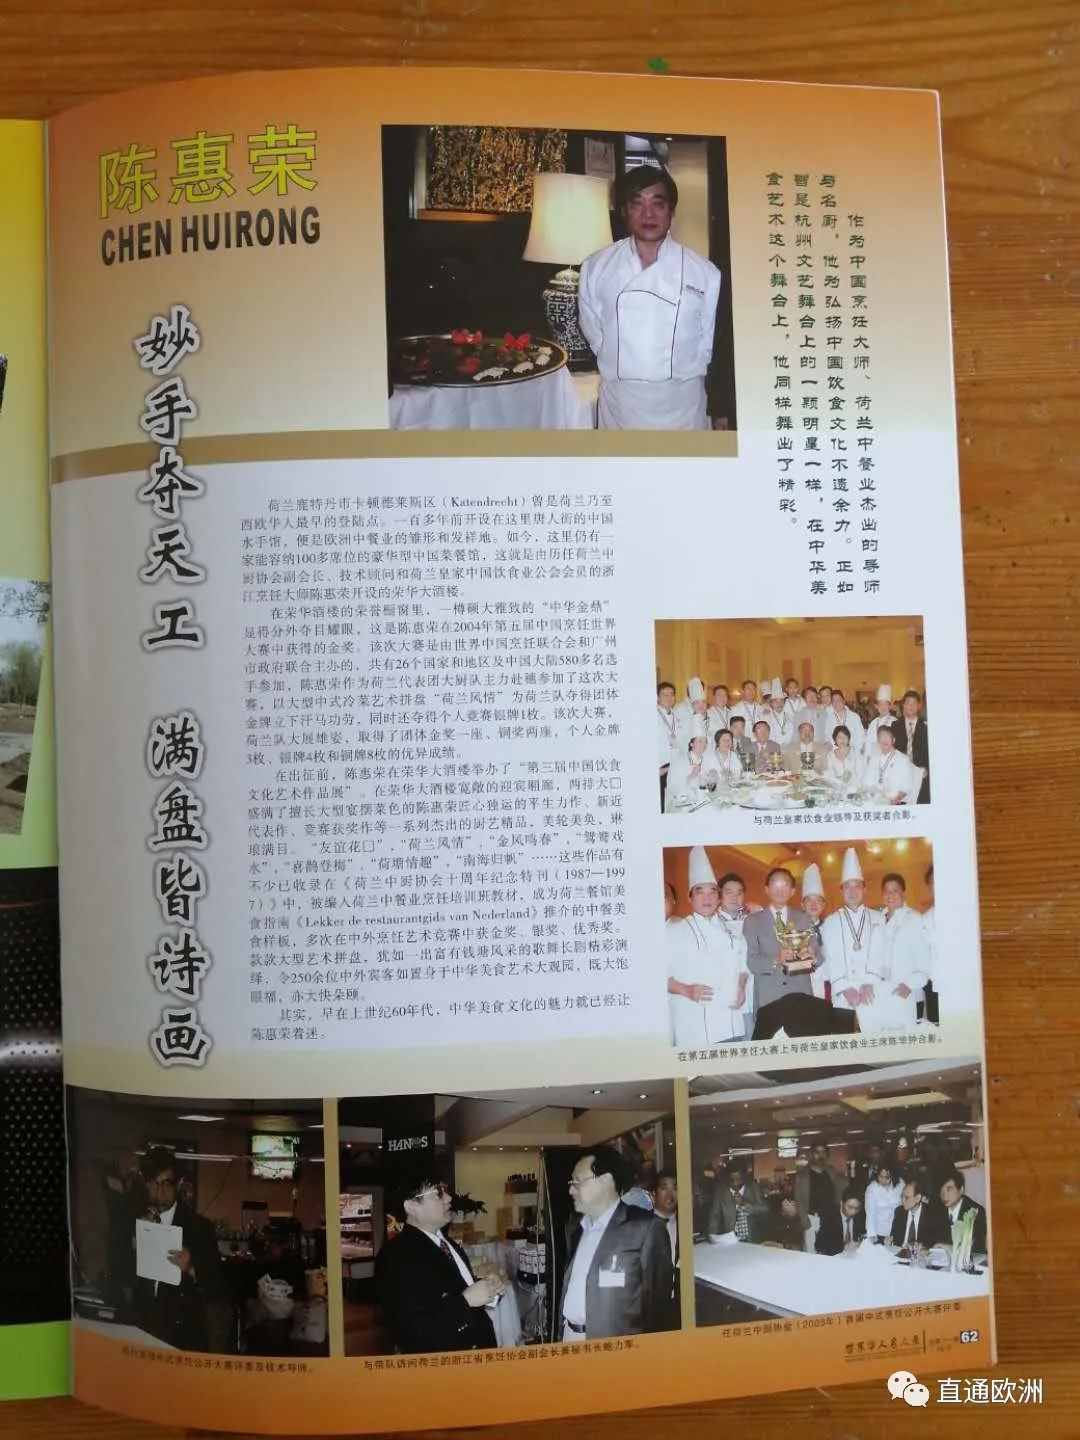 陈惠荣
CHEN HUIRONG
妙手夺天工 满盘皆诗画
作为中国烹饪大师、荷兰中餐业杰出的导师
与名厨，他为弘扬中国饮食文化不遗余力。正如
曾是杭州文艺舞台上的一颗明星一样，在中华美
食艺术这个舞台上，他同样舞出了精彩。
荷兰鹿特丹市卡顿德莱斯区（Katendrecht）曾是荷兰乃至
西欧华人最早的登陆点。一百多年前开设在这里唐人街的中国
水手馆，便是欧洲中餐业的雏形和发祥地。如今，这里仍有一
家能容纳100多席位的豪华型中国菜餐馆，这就是由历任荷兰中
厨协会副会长、技术顾问和荷兰皇家中国饮食业公会会员的浙
江烹饪大师陈惠荣开设的荣华大酒楼。
在荣华酒楼的荣誉橱窗里，一樽硕大雅致的“中华金鼎”
显得分外夺目耀眼，这是陈惠荣在2004年第五届中国烹饪世界
大赛中获得的金奖。该次大赛是由世界中国烹饪联合会和广州
市政府联合主办的，共有26个国家和地区及中国大陆580多名选
手参加，陈惠荣作为荷兰代表团大厨队主力赴穗参加了这次大
赛，以大型中式冷菜艺术拼盘“荷兰风情”为荷兰队夺得团体
金牌立下汗马功劳，同时还夺得个人竞赛银牌1枚。该次大赛，
荷兰队大展雄姿，取得了团体金奖一座、铜奖两座，个人金牌
3枚、银牌4枚和铜牌8枚的优异成绩。
在出征前，陈惠荣在荣华大酒楼举办了“第三届中国饮食
文化艺术作品展”。在荣华大酒楼宽敞的迎宾厢廊，两排大□
盛满了擅长大型宴摆菜色的陈惠荣匠心独运的平生力作、新近
代表作、竞赛获奖作等一系列杰出的厨艺精品，美轮美奂，琳
琅满目。“友谊花□”，“荷兰风情”，“金凤鸣春”，“鸳鸯戏
水”，“喜鹊登梅”，“荷塘情趣”，“南海归帆”……这些作品有
不少已收录在《荷兰中厨协会十周年纪念特刊（1987—199
7）》中，被编入荷兰中餐业烹饪培训班教材，成为荷兰餐馆美
食指南《Lekker de restaurantgids van Nederland》推介的中餐美
食样板，多次在中外烹饪艺术竞赛中获金奖、银奖、优秀奖。
款款大型艺术拼盘，犹如一出富有钱塘风采的歌舞长剧精彩演
绎，令250余位中外宾客如置身于中华美食艺术大观园，既大饱
眼福，亦大快朵颐。
其实，早在上世纪60年代，中华美食文化的魅力就已经让
陈惠荣着迷。
与荷兰皇家饮食业领导及获奖者合影。
在第五届世界烹饪大赛上与荷兰皇家饮食业主席陈华钟合影。
HANOS
中式烹饪公开大赛评委及技术导师。
与带队访问荷兰的浙江省烹饪协会副会长兼秘书长鲍力军。
任荷兰中厨协会（2003年）首届中式烹饪公开大赛评委。
世界华人名人录
62
直通欧洲